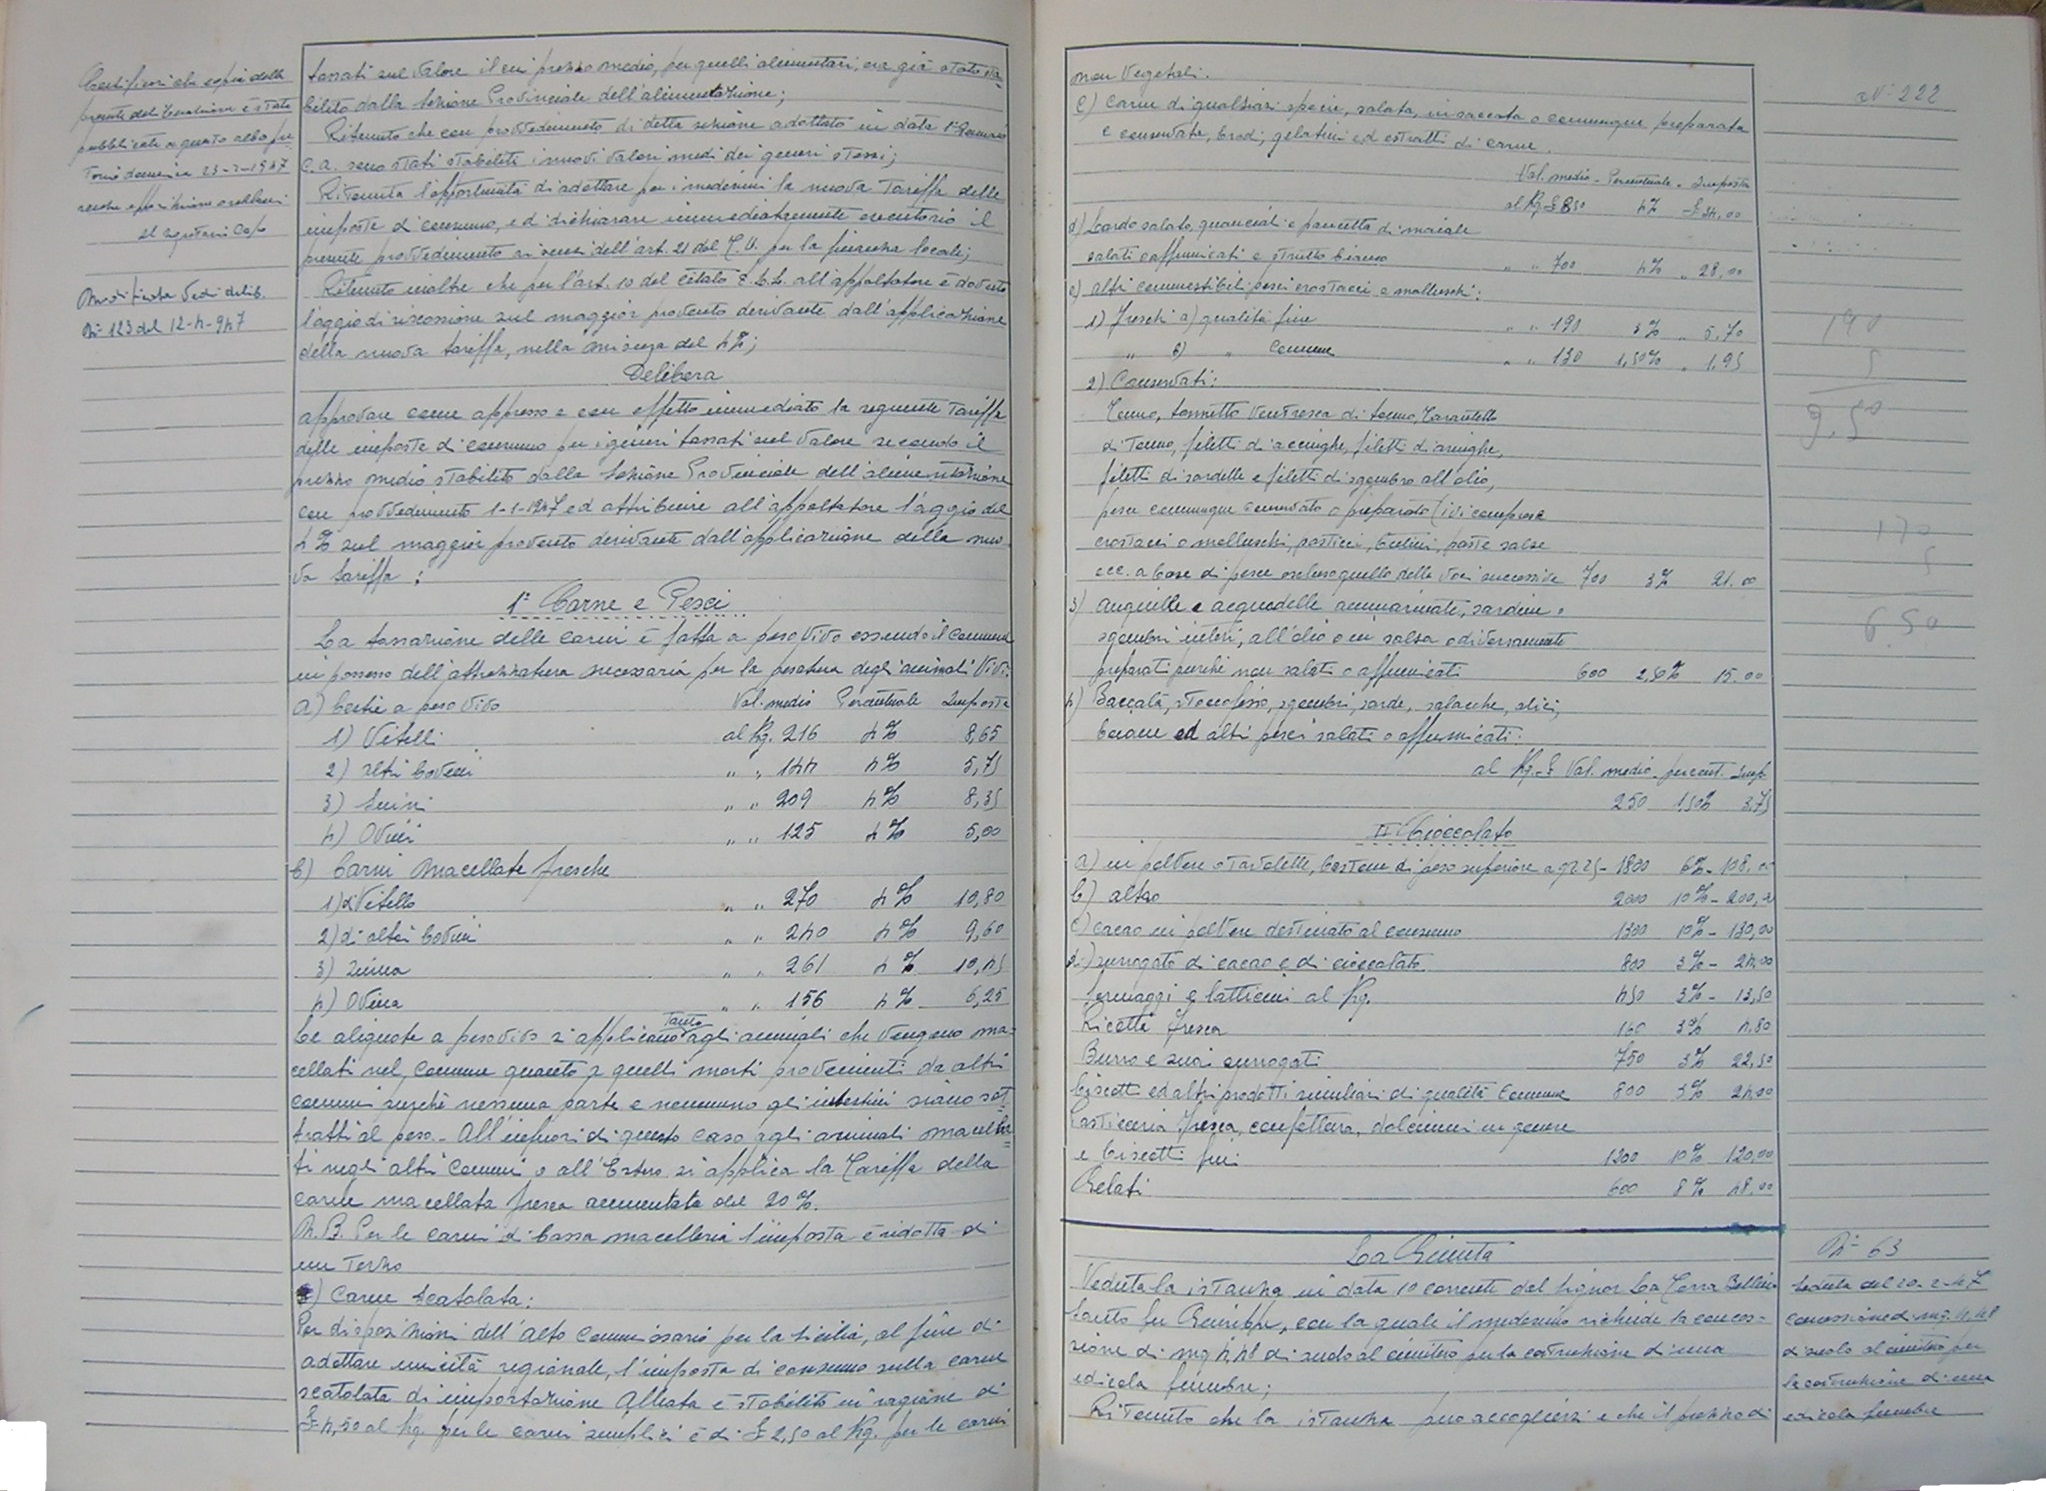 Certificasi che copia della
presente deliberazione è stata
pubblicata a questo albo pre
torio domenica 23-2-1947
senza opposizioni o reclami
Il Segretario Capo
Modificata Vedi delib.
N° 123 del 12-4-947
tassati sul valore il cui prezzo medio, per quelli alimentari, era già stato sta=
bilito dalla Sezione Provinciale dell'alimentazione;
Ritenuto che con provvedimento di detta sezione adottato in data 1° Gennaio
c.a. sono stati stabiliti i nuovi valori medi dei generi stessi;
Ritenuta l'opportunità di adottare per i medesimi la nuova Tariffa delle
imposte di consumo, e di dichiarare immediatamente esecutorio il
presente provvedimento ai sensi dell'art. 21 del T.U. per la finanza locale;
Ritenuto inoltre che per l'art. 10 del citato all'appaltatore è dovuto
l'aggio di riscossione sul maggior provento derivante dall'applicazione
della nuova tariffa, nella misura del 4%;
Delibera
approvare come appresso e con effetto immediato la seguente Tariffa
delle imposte di consumo per i generi tassati sul valore secondo il
prezzo medio stabilito dalla Sezione Provinciale dell'alimentazione
con provvedimento 1-1-1947 ed attribuire all'appaltatore l'aggio del
4% sul maggior provento derivante dall'applicazione della nuo
va tariffa:
1° Carne e Pesci
La tassazione delle carni è fatta a peso vivo essendo il Comune
in possesso dell'attrezzatura necessaria per la pesatura degli animali vivi.
a) bestie a peso vivo Val. medio Percentuale Imposta
1) Vitelli al Kg. 216 4% 8,65
2) altri bovini " " 144 4% 5,75
3) Suini " " 209 4% 8,35
4) Ovini " " 125 4% 5,00
b) Carni macellate fresche
1) di Vitello " " 270 4% 10,80
2) di altri bovini " " 240 4% 9,60
3) Suina " " 261 4% 10,45
4) Ovina " " 156 4% 6,25
Le aliquote a peso vivo si applicano Tanto agli animali che vengono ma=
cellati nel Comune quanto a quelli morti provenienti da altri
comuni purchè nessuna parte e nemmeno gli intestini siano sot=
tratti al peso. - All'infuori di questo caso agli animali macella=
ti negli altri Comuni o all'Estero si applica la Tariffa della
carne macellata fresca aumentata del 20%.
N.B. Per le carni di bassa macelleria l'imposta è ridotta di
un Terzo
) Carne Scatolata:
Per disposizioni dell'Alto Commissario per la Sicilia, al fine di
adottare unicità regionale, l'imposta di consumo sulla carne
scatolata di importazione Alleata è stabilito in ragione di
£ 4,50 al Kg. per le carni semplici e di £ 2,50 al Kg. per le carni
N° 222
non Vegetali.
c) Carne di qualsiasi specie, salata, insaccata o comunque preparata
e conservata, brodi, gelatine ed estratti di carne.
Val. medio - Percentuale - Imposta
al Kg. £ 850 4% £ 34,00
d) Lardo salato, guanciali e pancetta di maiale
salati o affumicati e strutto bianco " " 700 4% " 28,00
e) altri commestibili pesci crostacei e molluschi:
1) freschi a) qualità fine " " 190 3% " 5,70
" b) " comune " " 130 1,50% " 1,95
190
5
9,50
2) Conservati:
Tonno, tonnetto ventresca di tonno, Tarantello
di Tonno, filetti di acciughe, filetti di aringhe,
filetti di sardelle e filetti di sgombro all'olio,
pesce comunque conservato o preparato (ivi comprese
crostacei o molluschi, pasticci, budini, paste salse
ecc. a base di pesce escluso quello delle voci successive 700 3% 21.00
3) anguille e acquadelle ammarinate, sardine o
sgombri interi, all'olio o in salsa o diversamente
preparati purchè non salati o affumicati 600 2,50% 15.00
5
6.50
4) Baccalà, stoccafisso, sgombri, sarde, salacche, alici,
ed altri pesci salati o affumicati:
al Kg. £ Val. medio - percent. Imp.
250 1,50% 3,75
II° Cioccolato
a) in polvere o tavolette, bastone di peso superiore a gr. 25 - 1800 6% - 108,00
b) altro 2000 10% - 200,00
c) cacao in polvere destinato al consumo 1300 10% - 130,00
d) surrogato di cacao e di cioccolato 800 3% - 24,00
formaggi e latticini al Kg. 450 3% - 13,50
Ricotta fresca 160 3% 4,80
Burro e suoi surrogati 750 3% 22,50
biscotti ed altri prodotti similari di qualità Comune 800 3% 24,00
Pasticceria fresca, confettura, dolciumi in genere
e biscotti fini 1200 10% 120,00
Gelati 600 8% 48,00
La Giunta
Veduta la istanza in data 10 corrente del Signor La Terra
fu con la quale il medesimo richiede la conces-
sione di mq 4,48 di suolo al cimitero per la costruzione di una
edicola funebre;
Ritenuto che la istanza può accogliersi e che il prezzo di
N° 63
Seduta del 20-2-47
concessione di mq. 4,48
di suolo al cimitero per
la costruzione di una
edicola funebre